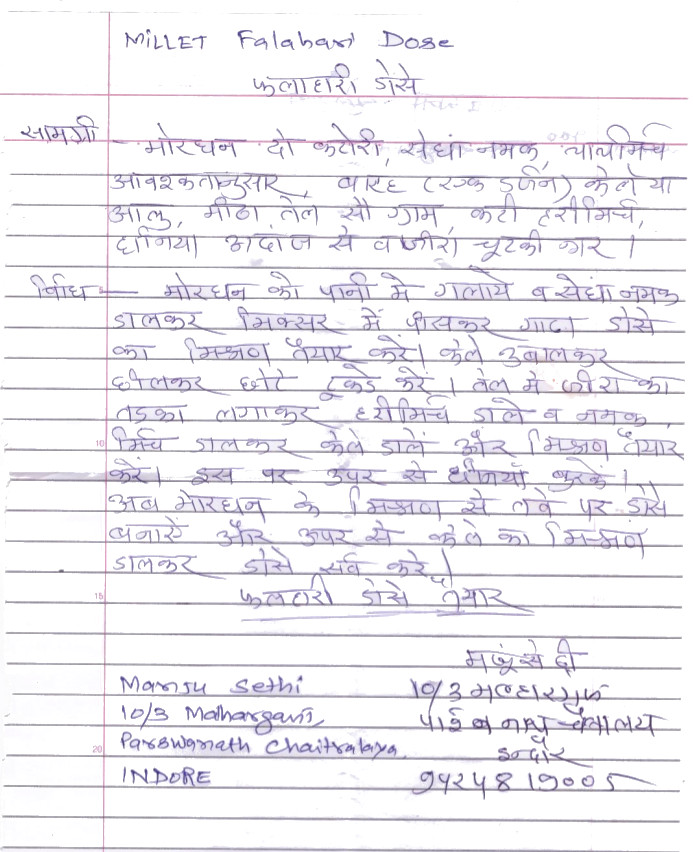 MILLET Falahari Dose
फलाहारी डोसे
सामग्री - मोरधन दो कटोरी, सेधां नमक, लालमिर्च
आवश्कतानुसार, बारह (एक डर्जन) केले या
आलु, मीठा तेल सौ ग्राम, कटी हरीमिर्च,
धानिया अदांज से व जीरा चूटकी भर ।
विधि — मोरधन को पानी मे गलाये व सेधा नमक
डालकर मिक्सर में पीसकर गाढा डोसे
का मिश्रण तैयार करें। केले उबालकर
छीलकर छोटे टूकडे करें । तेल मे जीरा का
तडका लगाकर हरीमिर्च डाले व नमक,
10 मिर्च डालकर केले डालें और मिश्रण तैयार
करें। इस पर उपर से धनियाँ बुरके।
अब मोरधन के मिश्रण से तवे पर डोसे
बनाएँ और उपर से केले का मिश्रण
डालकर डोसे सर्व करें।
15 फलहारी डोसे तैयार
मजूं सेठी
Manju Sethi 10/3 मल्हारगंज
10/3 Malharganj,
20 Parswanath Chaitralaya. इन्दौर
INDORE 9424819005